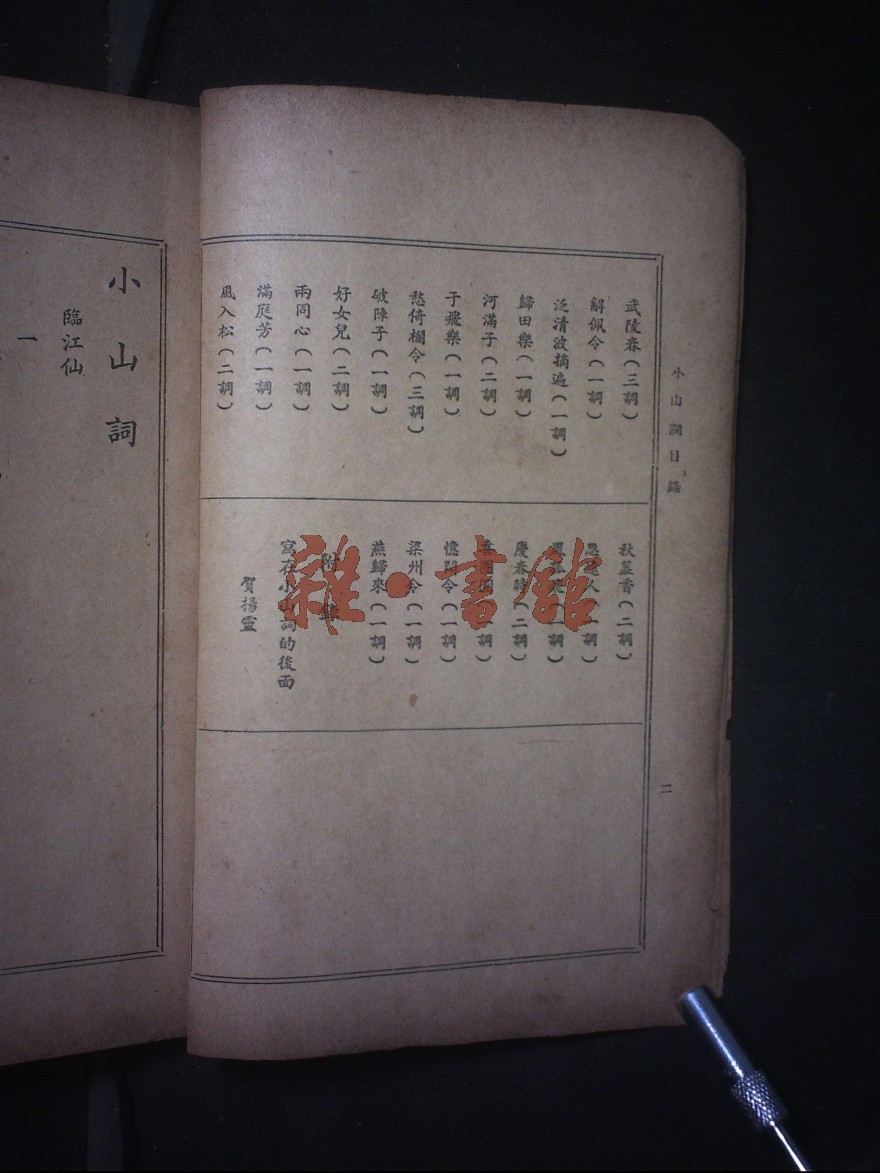 小山詞目錄
武陵春(三調)
解佩令(一調)
泛清波摘遍(一調)
歸田樂(一調)
河滿子(二調)
于飛樂(一調)
愁倚欄令(三調)
破陣子(一調)
好女兒(二調)
兩同心(一調)
滿庭芳(一調)
風入松(二調)
秋蕊香(二調)
思遠人(一調)
鳳孤飛(一調)
慶春時(二調)
喜團圓(一調)
憶悶令(一調)
梁州令(一調)
燕歸來(一調)
附錄
寫在小山詞的後面
賀揚靈
二
小山詞
臨江仙
一
雜·書館